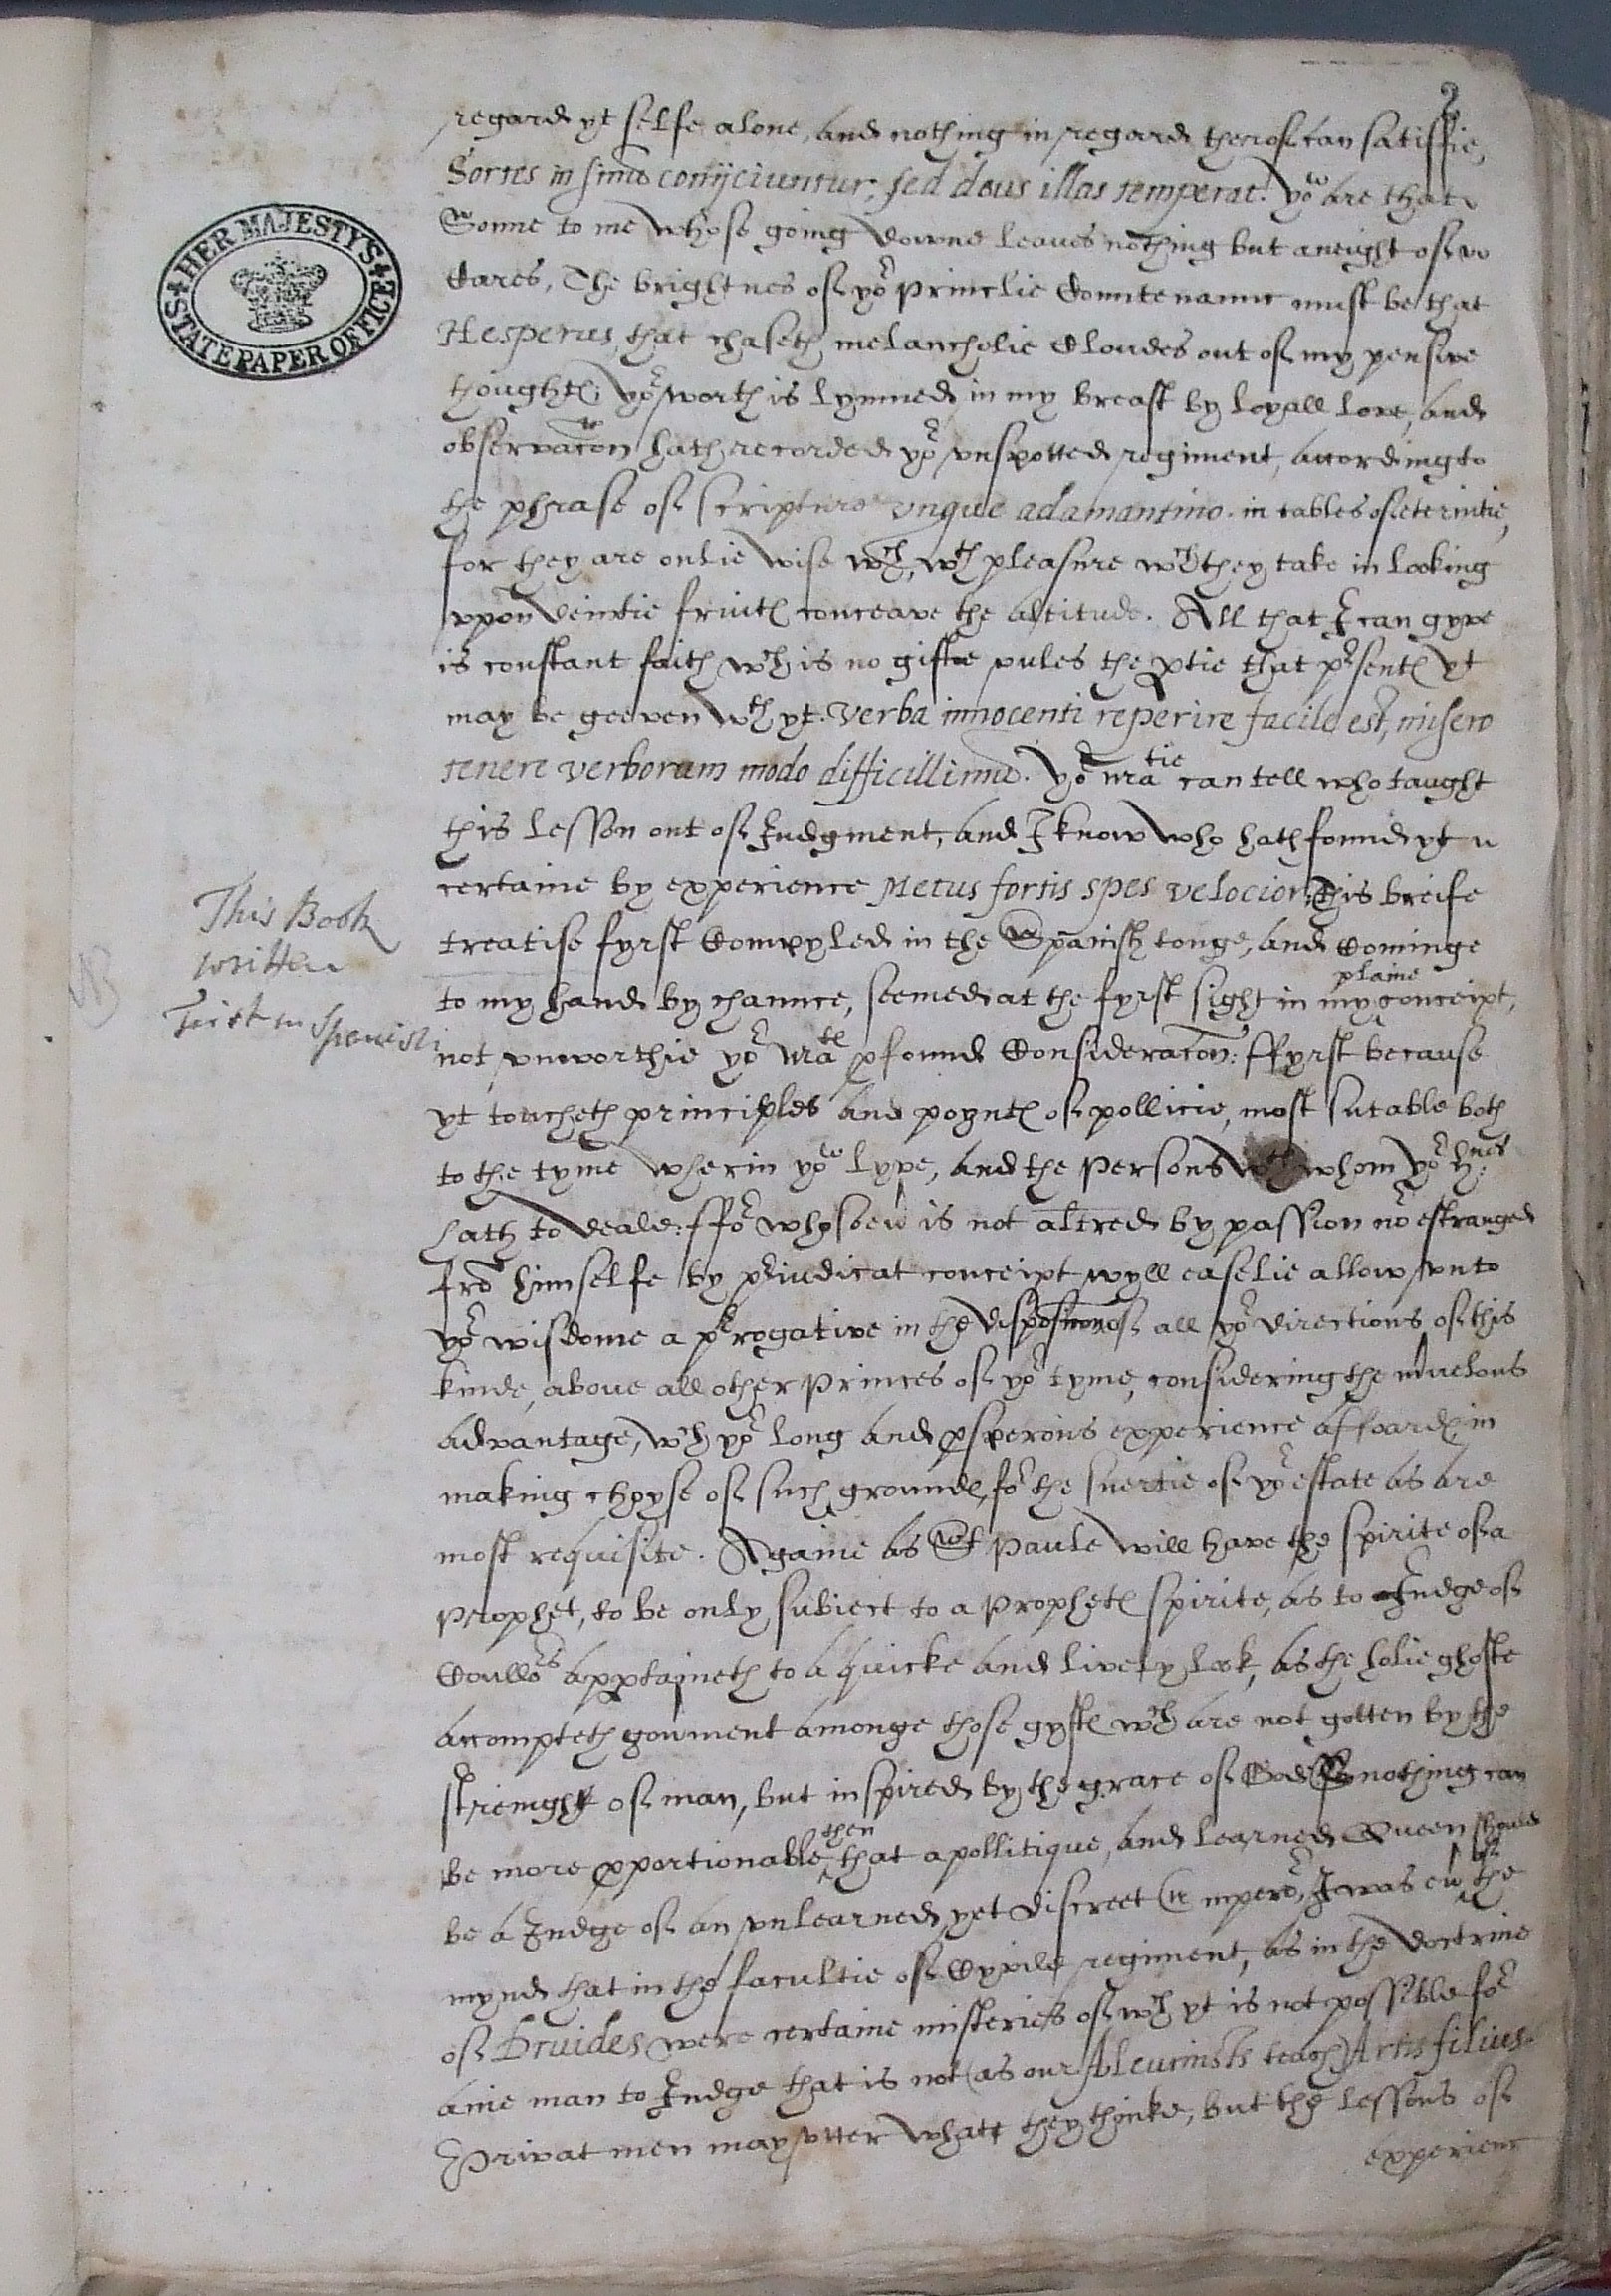 2
regard yt selfe alone, and nothing in regard therof can satisfie,
Sortes in sinū conijciuntur, sed deus illas temperat. yoᵘ are that
Sonne to me whose going downe leaues nothing but a neight of
Cares, The brightnes of yoʳ Princlie Countenannc must be that
Hesperus, that chaseth melancholie Cloudes out of my pensive
thoughtes; yoʳ worth is lymned in my breast by loyall love, and
observacōn hath recorded yoʳ vnspotted regiment, according to
the phrase of scripture vngue adamantino. in tables of eternitie,
for they are onlie wise wᶜʰ, wᵗʰ pleasure wᶜʰ they take in looking
vpon deintie fruites conceave the altitude. All that I can gyve
is constant faith wᶜʰ is no gifte vnles the ptie that pʳsentes yt
may be geeven wᵗʰ yt. Verba innocenti reperire facile est, misero
tenere verborum modo difficillimū. yoʳ Maᵗⁱᵉ can tell who taught
this lesson out of Iudgment, and I know who hath found yt
certaine by experience Metus fortis spes velocior, This breife
treatise fyrst Compyled in the Spanish tonge, and Cominge
to my hand by chaunce, seemed at the fyrst sight in my plaine conceipt,
not vnworthie yoʳ Maᵗˢ pfound Consideracōn: ffyrst because
yt toucheth principles and poyntes of pollicie, most sutable both
to the tyme wherin yoᵘ lyve, and the Persons wᵗʰ whom yoʳ hⁿᵉˢ:
hath to deale: ffoʳ whosoeu is not altred by passion noʳ estranged
frō himselfe by pʳiudicat conceipt wyll easelie allow vnto
yoʳ wisdome a pʳrogative in the disposition of all yoʳ directions of this
kinde, aboue all other Princes of yoʳ tyme, considering the muelous
advantage, wᶜʰ yoʳ long and psperous experience affoardes in
making choyse of such groundes, foʳ the suertie of yoʳ estate as are
most requisite. Againe as Sᵗ Paule will have the spirite of a
Prophet, to be only subiect to a Prophetes spirite, as to Iudge of
Coulloʳˢ apptaineth to a quicke and lively look, as the holie ghoste
accompteth goument amonge those gyftes wᶜʰ are not gotten by the
streinght of man, but inspired by the grace of God So nothing can
be more pportionable then that a pollitique, and learned Queen should
be a Iudge of an vnlearned, yet discreet Empeʳoʳ, I was eu of the
mynd that in the facultie of Cyvile regiment, as in the doctrine
of Druides were certaine misteries of wᶜʰ yt is not possible foʳ
anie man to Iudge that is not (as our Alcumists teach) Artis filius.
Privat men may vtter what they thinke, but the lessons of
experienc
HER MAJESTY'S
STATE PAPER OFFICE
This Book
written
First in Spanish
NB